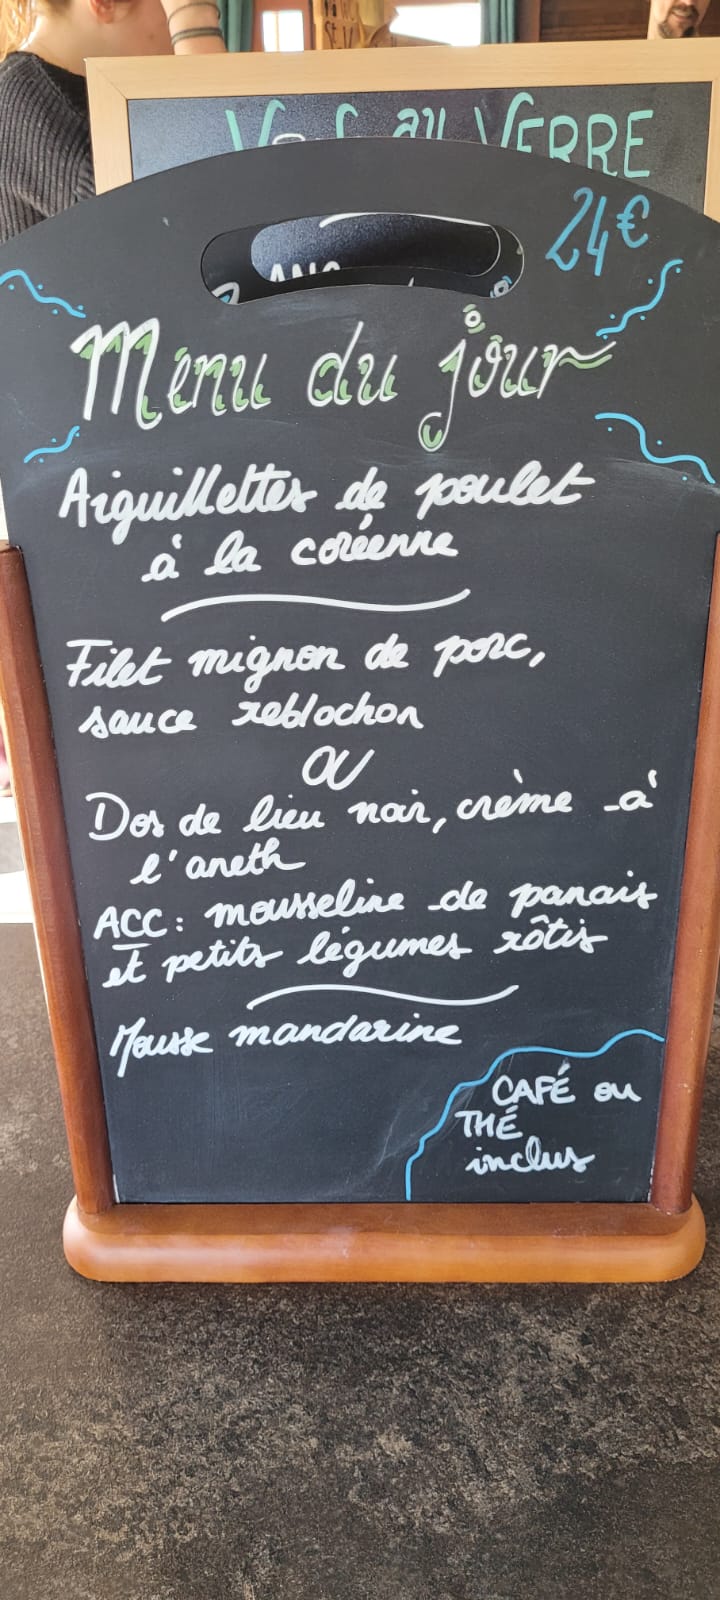 au VERRE
24€
Menu du jour
Aiguillettes de poulet
à la coréenne
Filet mignon de porc,
sauce reblochon
OU
Dos de lieu noir, crème à
l'aneth
ACC: mousseline de panais
et petits légumes rôtis
Mousse mandarine
CAFÉ ou
THÉ
inclus